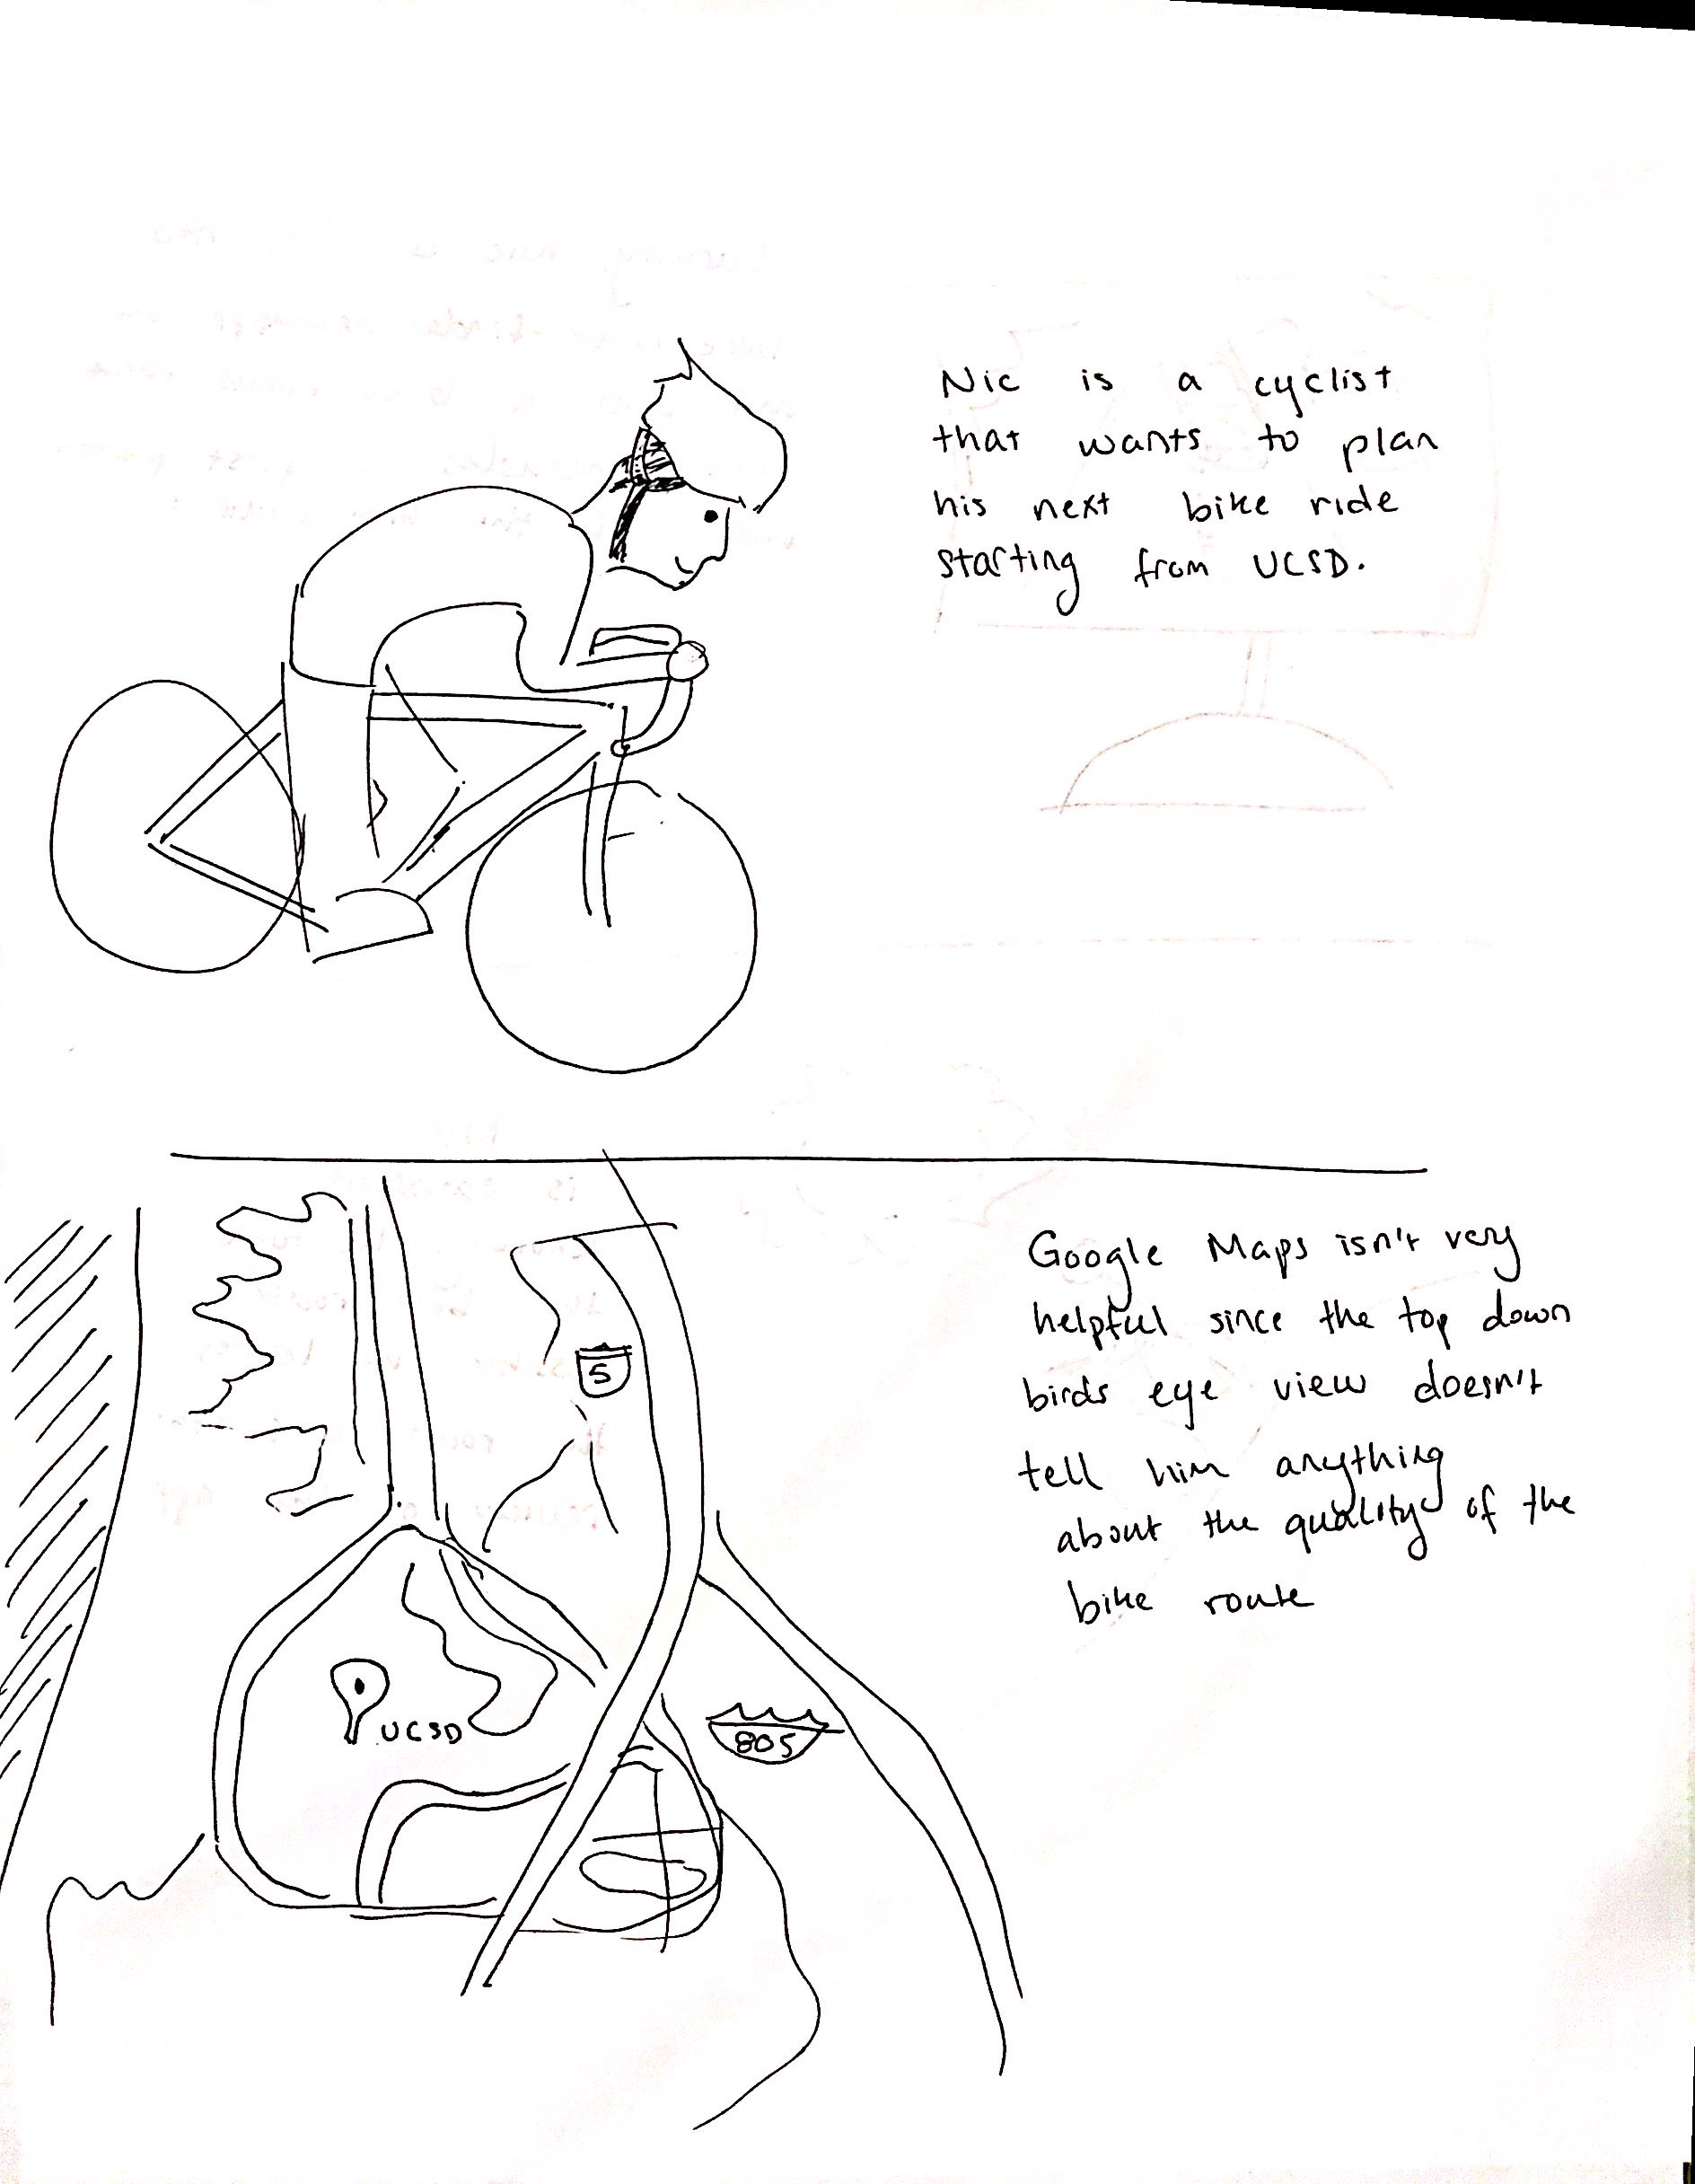 Nic is a cyclist
that wants to plan
his next bike ride
starting from UCSD.
Google Maps isn't very
helpful since the top down
birds eye view doesn't
tell him anything
about the quality of the
bike route
5
UCSD
805